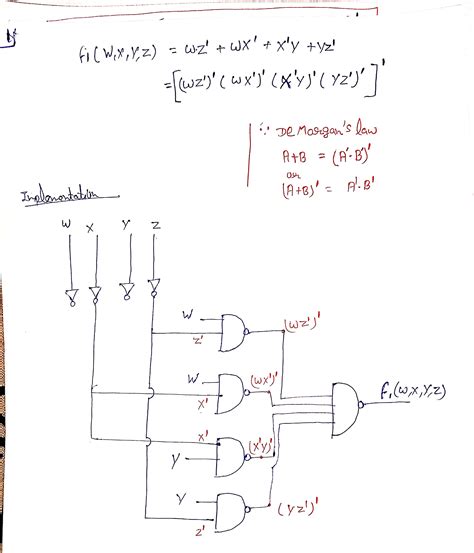 f₁(W,X,Y,Z) = WZ' + WX' + X'Y + YZ'
= [(WZ')' (WX')' (X'Y)' (YZ')']'
∵ De Morgan's law
A+B = (A'·B')'
or
(A+B)' = A'·B'
Implementation
W X Y Z
W
Z'
(WZ')'
W
X'
(WX')'
f₁(W,X,Y,Z)
X'
Y
(X'Y)'
Y
Z'
(YZ')'